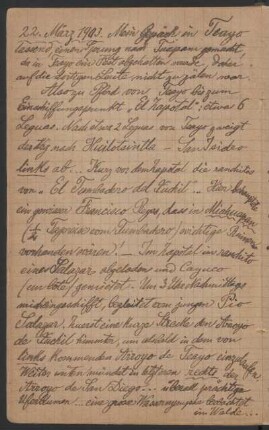 22. März 1903. Mein Gepäck in Teayo
lassend, einen Sprung nach Tuxpam gemacht,
da in Teayo ein Fest abgehalten wurde, daher
auf die dortigen Leute nicht zu zälen war.
Also zu Pferd von Teayo bis zum
Einschiffungspunkt „El Zapotal": etwa 6
Leguas. Nach etwa 2 Leguas von Teayo zweigt
der Weg nach San Isidro
links ab... Kurz vor dem Zapotal die ranchito
von „El Tumbadero del Juchil". Hier
ein gewisser Francisco Reyes, dass in Michuapan
(1/2 Legua vom Tumbadero) wichtige Ruinen
vorhanden wären! – Im Zapotal im ranchito
eines Salazar abgeladen und Cayuco
(ein Boot) gemietet. Um 3 Uhr Nachmittags
eingeschifft, begleitet vom jungen Pio
Salazar, zuerst eine kurze Strecke den Arroyo
de Juchil hinunter, um alsbald in den von
links kommenden Arroyo de Teayo
Weiter unten mündet in letzteren, rechts, der
Arroyo de San Diego... überall prächtige
Uferbäume!... eine grosse Wasser
im Walde...